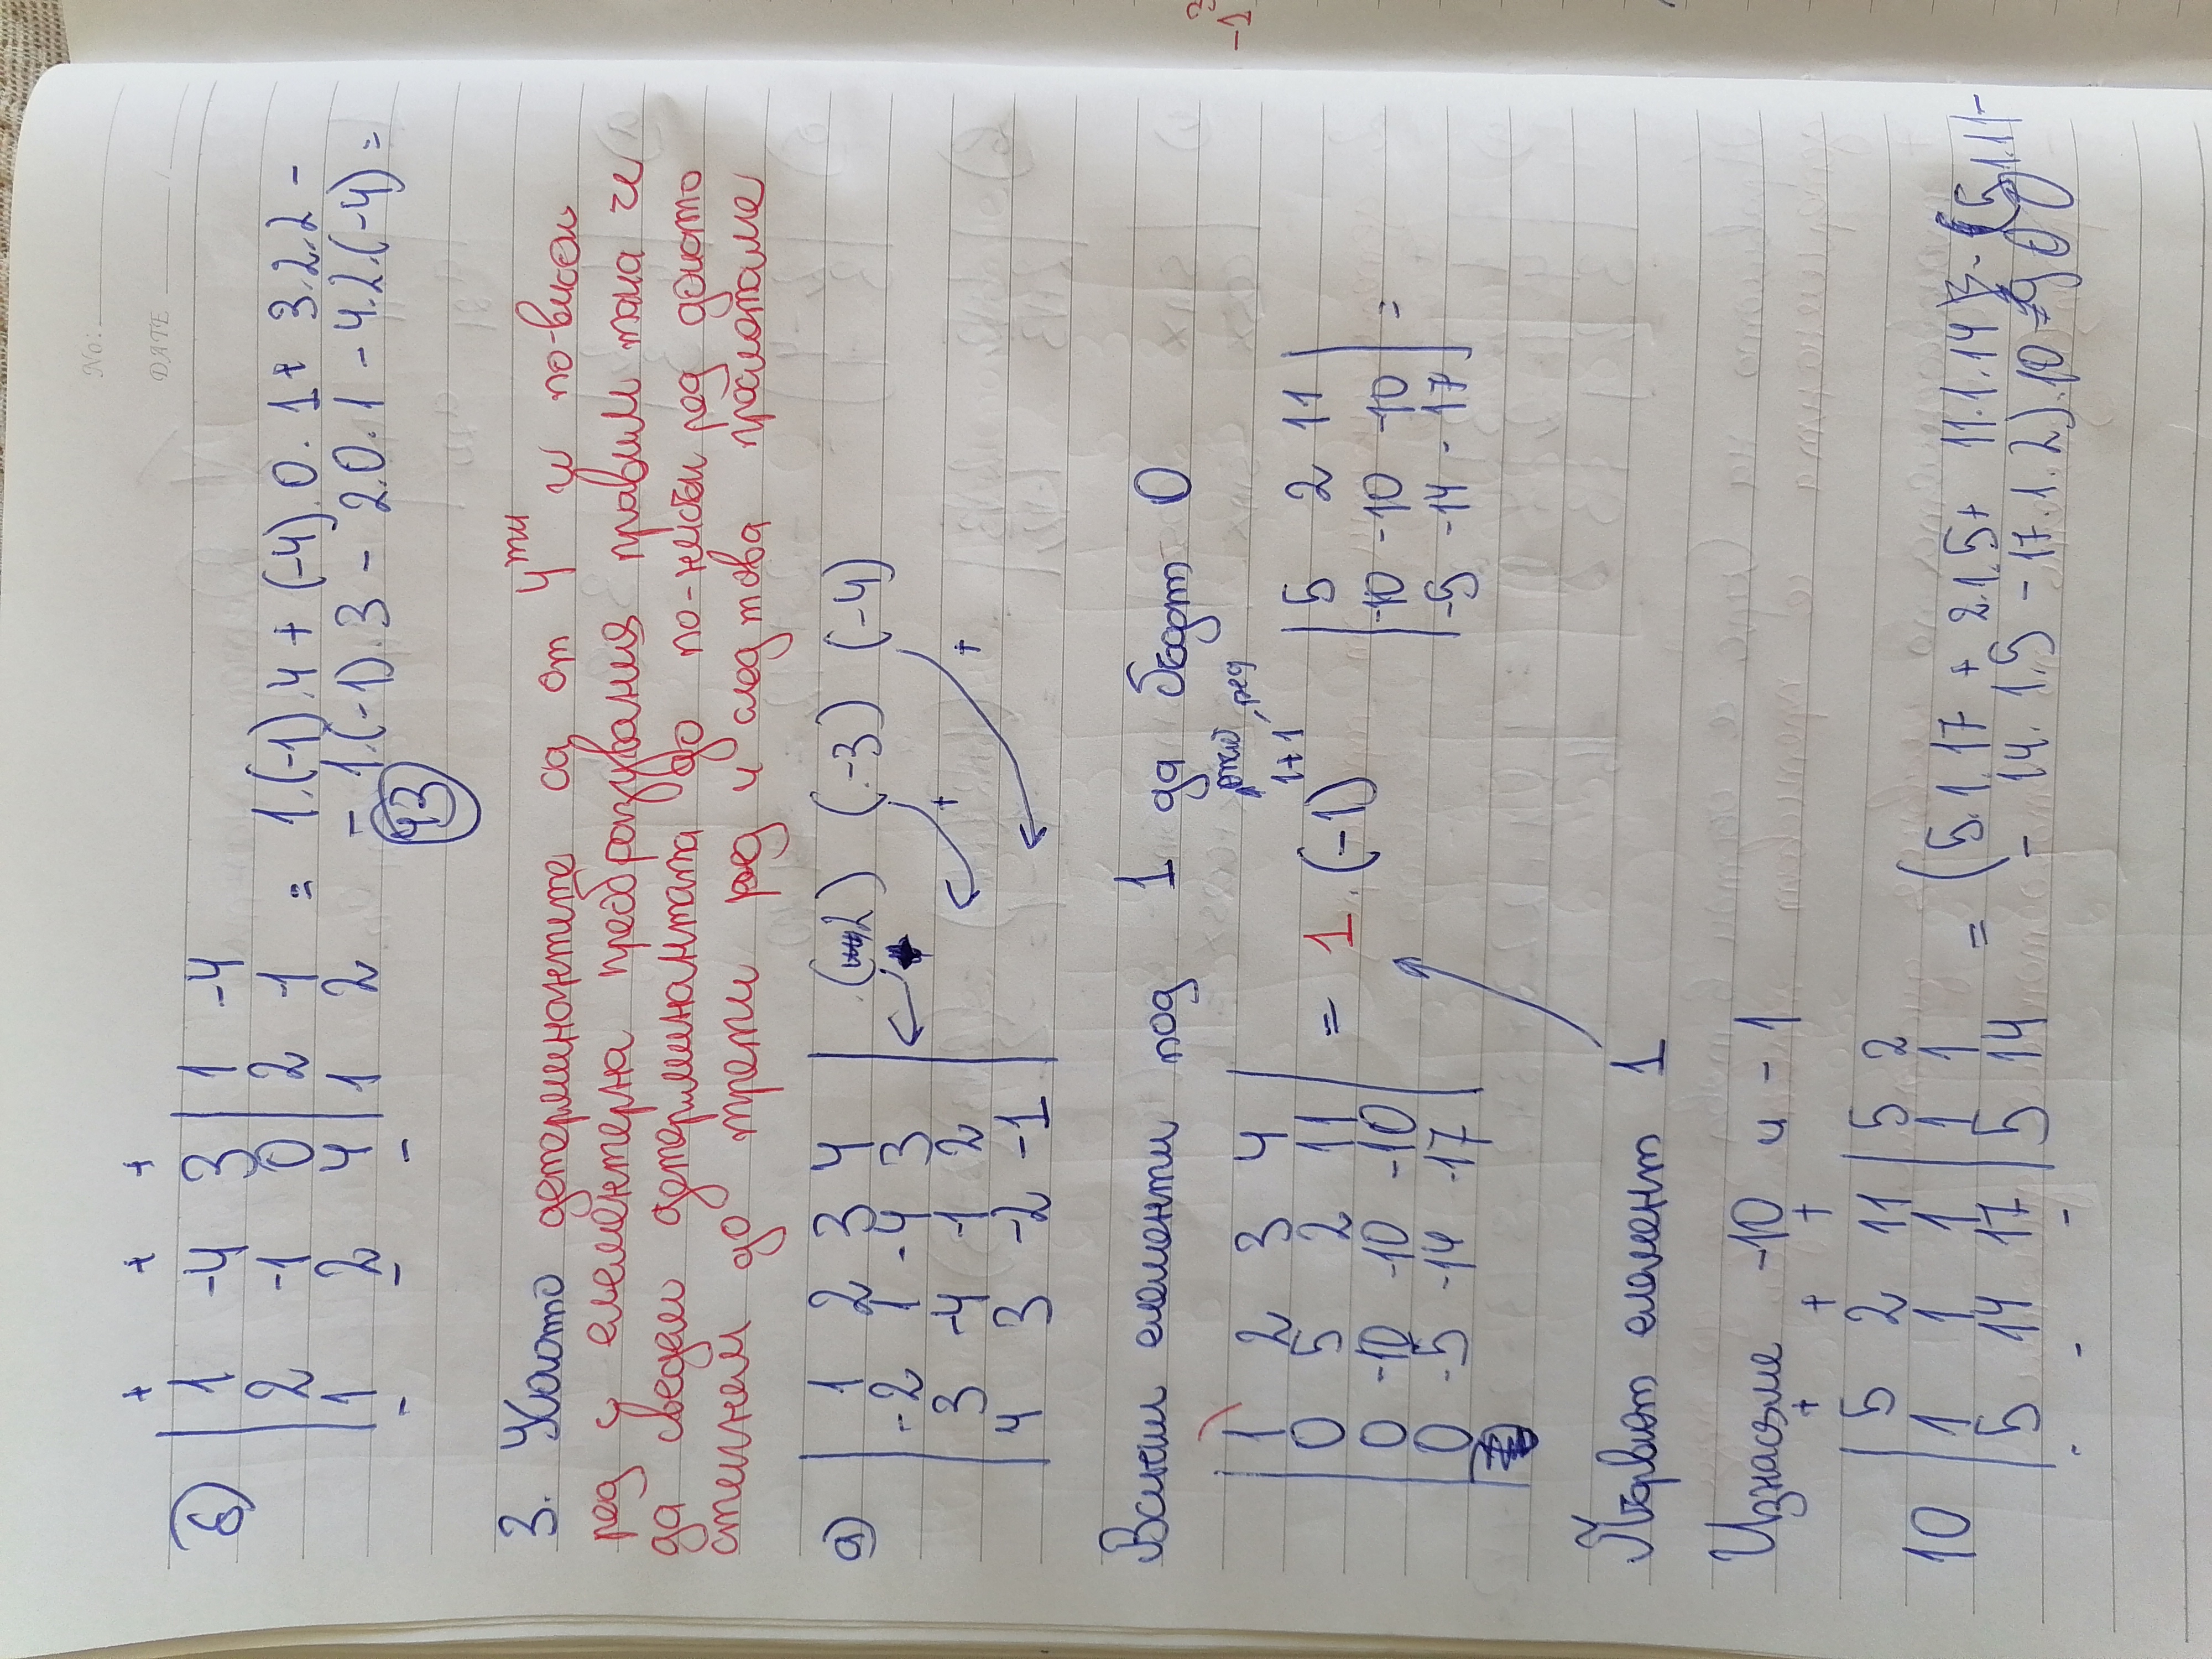 No:
DATE /
+ + +
б) | 1 -4 3 | 1 -4
| 2 -1 0 | 2 -1 = 1.(-1).4 + (-4).0.1 + 3.2.2 -
| 1 2 4 | 1 2 - 1.(-1).3 - 2.0.1 - 4.2.(-4) =
- - -
43
3. Когато детерминантите са от 4ти и по-висок
ред с елементерна преобразувания правим така че
да сведем детерминантата до по-нисък ред докато
стигнем до трети ред и след това прослотаме
а) | 1 2 3 4 | (2) (-3) (-4)
| -2 1 -4 3 |
| 3 -4 -1 2 | + +
| 4 3 -2 -1 |
Всички елементи под 1 да бъдат 0
ред
| 1 2 3 4 | 1+1
| 0 5 2 11 | = 1.(-1) | 5 2 11 |
| 0 -10 -10 -10 | | -10 -10 -10 | =
| 0 -5 -14 -17 | | -5 -14 -17 |
Първият елемент 1
Изнасяме -10 и -1
+ + +
| 5 2 11 | 5 2
10 | 1 1 1 | 1 1 = (5.1.17 + 2.1.5 + 11.1.14 - 5.1.11 -
| 5 14 17 | 5 14 - 14.1.5 - 17.1.2).10 = 900
- - -
-1³